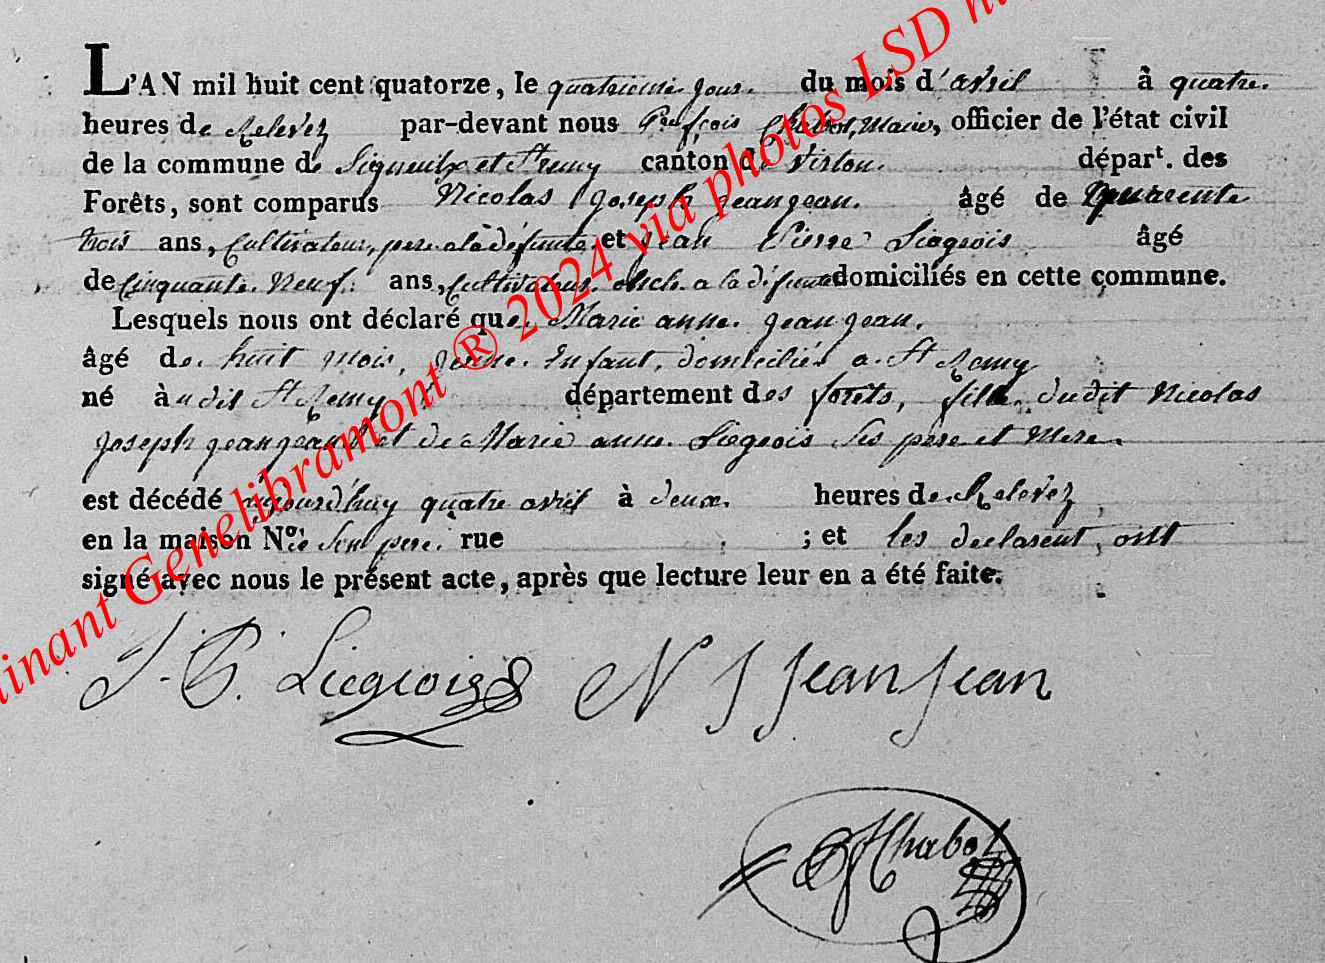 L'AN mil huit cent quatorze, le quatrieme jour. du mois d'avril à quatre.
heures de Relevez par-devant nous fçois Chabot, Maire, officier de l'état civil
de la commune de Signeulx et St Remy canton de Virton. départ. des
Forêts, sont comparus Nicolas Joseph jeanjean. âgé de quarente
trois ans, Cultivateur, pere a la défunte et jean Pierre Liegeois âgé
de Cinquante. Neuf. ans, Cultivateur. a la défunte domiciliés en cette commune.
Lesquels nous ont déclaré que Marie anne. jeanjean.
âgé de huit mois, jeune. Enfant, domiciliée a St Remy
né à udit St Remy département des forêts, fille dudit Nicolas
Joseph jeanjean et de Marie anne. Liegeois Ses pere et Mere.
est décédé aujourd'huy quatre avril à deux. heures de Relevez
en la maison N.º de Son pere. rue ; et les declarent, ont
signé avec nous le présent acte, après que lecture leur en a été faite.
J. P. Liegeois N J JeanJean
Chabot
inant Genelibramont ® 2024 via photos LSD